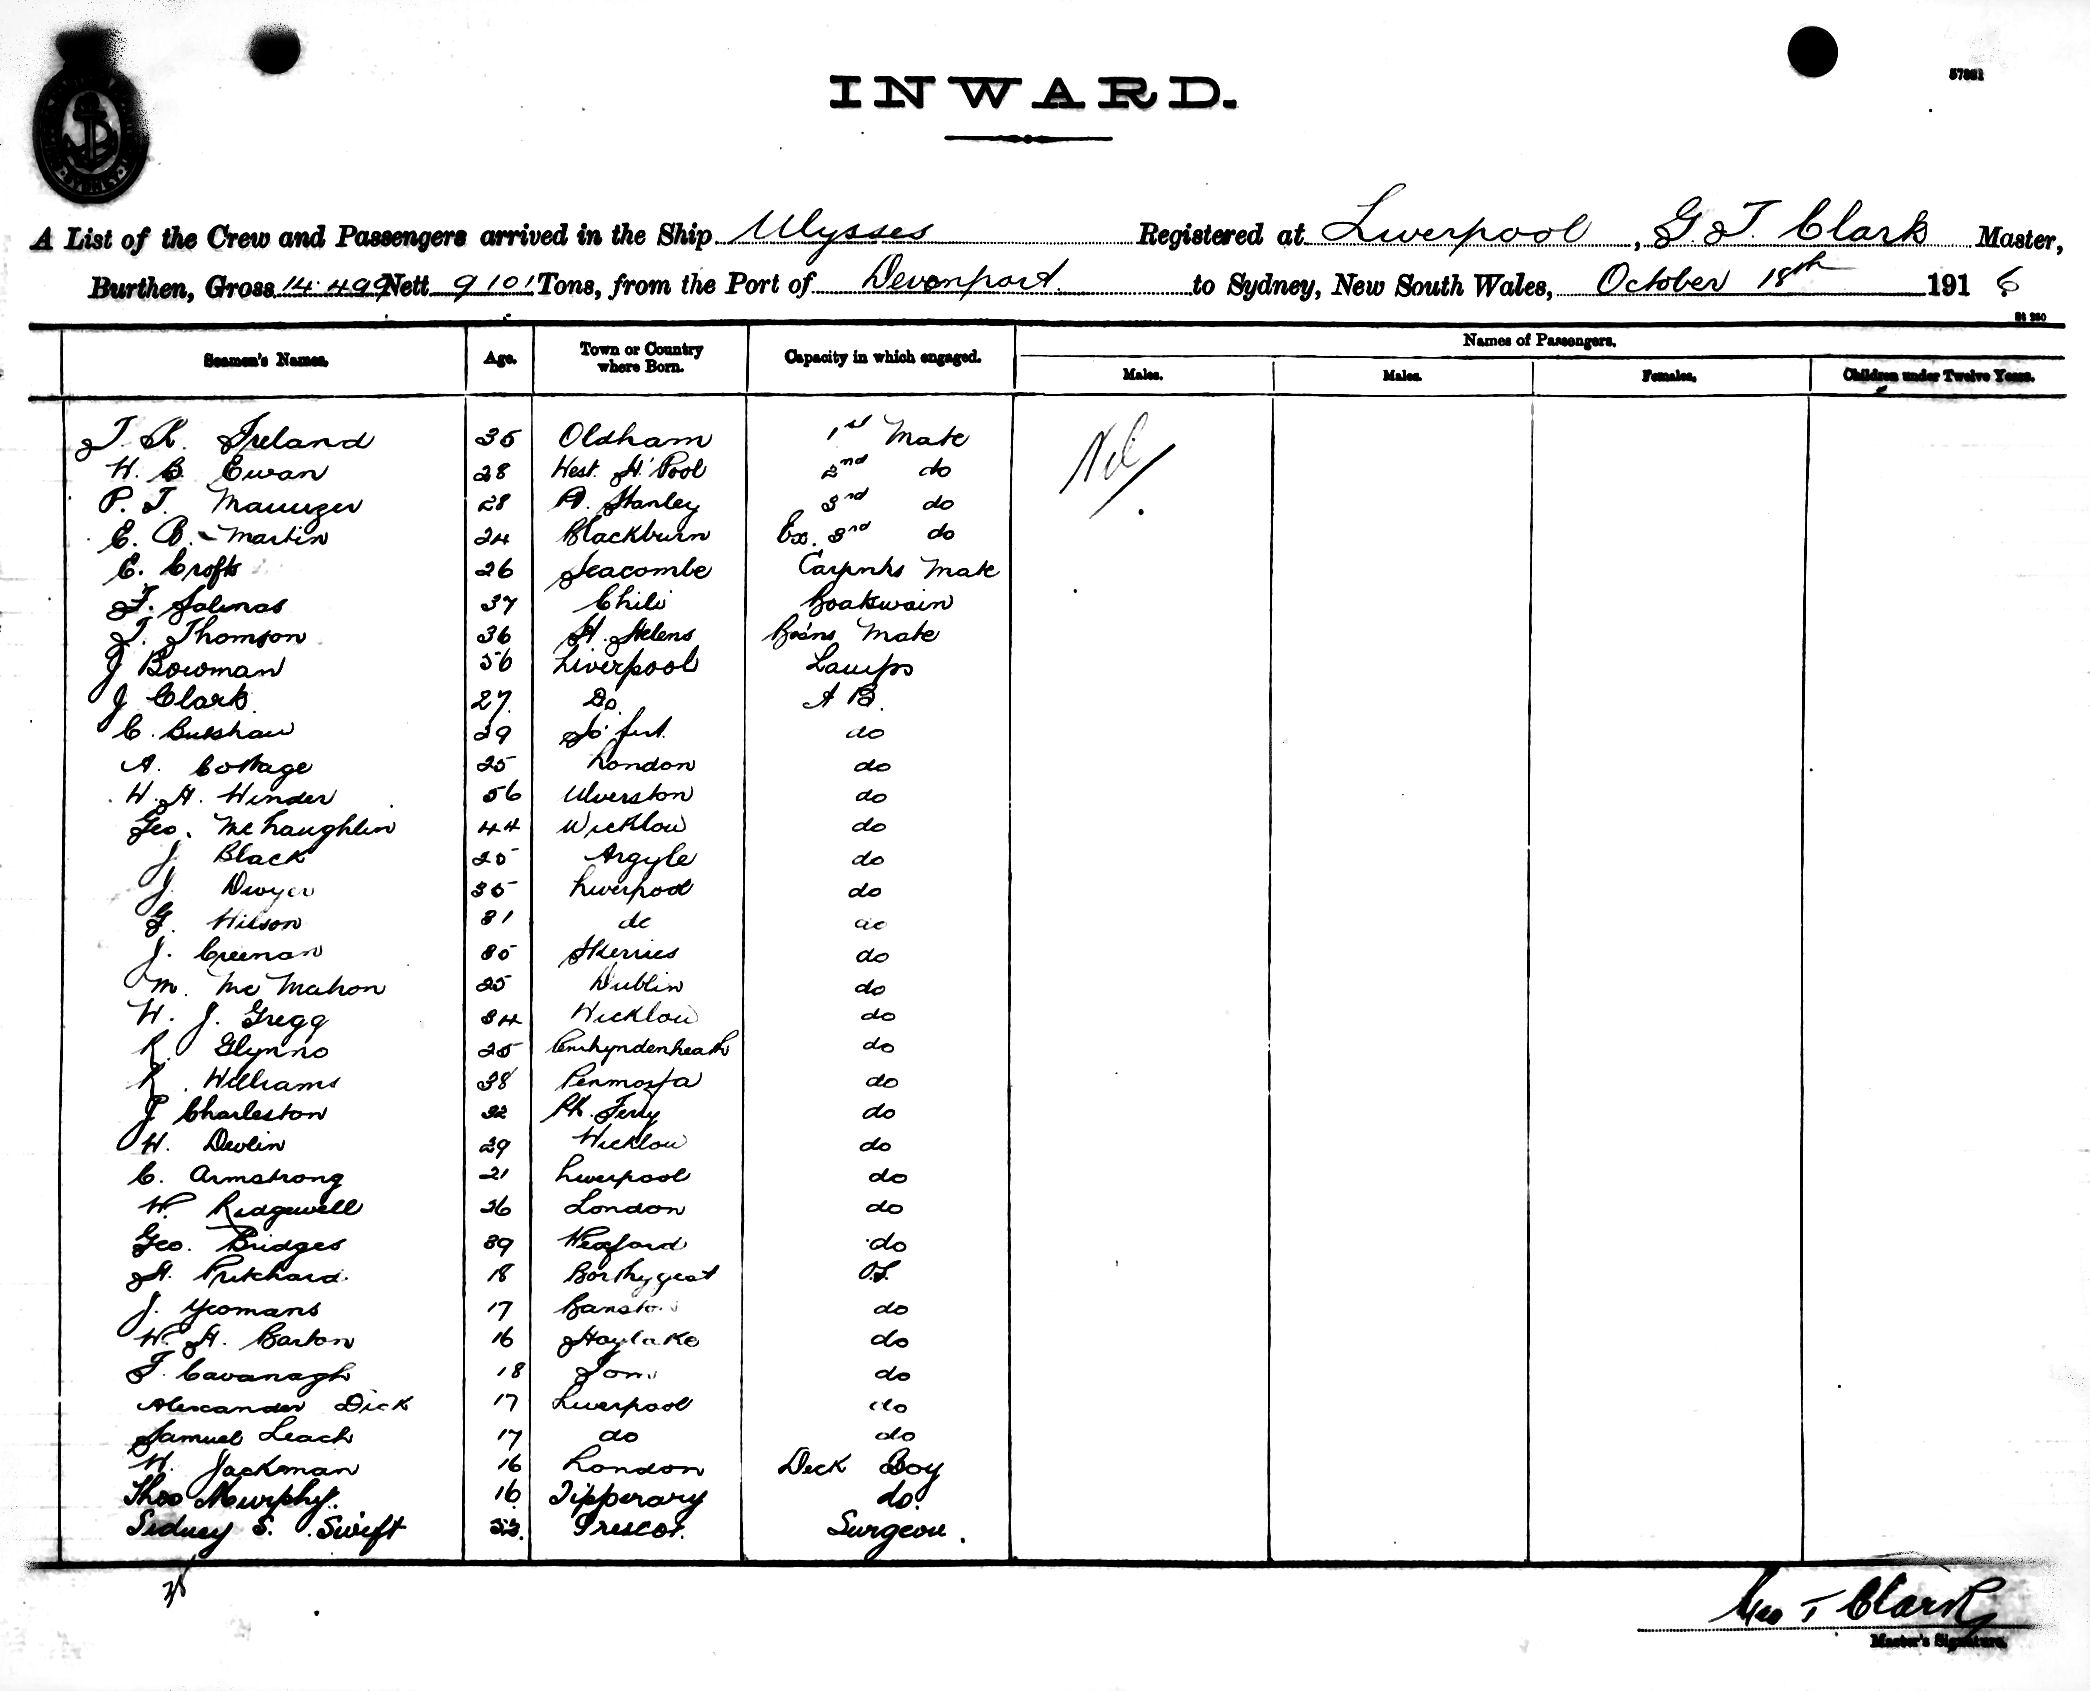 57881
INWARD.
SYDNEY
A List of the Crew and Passengers arrived in the Ship Ulysses Registered at Liverpool, G. T. Clark Master,
Burthen, Gross 14.499 Nett 9101 Tons, from the Port of Devonport to Sydney, New South Wales, October 18th 1916
Names of Passengers.
Seamen's Names. Age. Town or Country where Born. Capacity in which engaged. Males. Males. Females. Children under Twelve Years.
J. R. Ireland 35 Oldham 1st Mate Nil
H. B. Ewan 28 West H'Pool 2nd do
P. T. 28 Pt. Stanley 3rd do
E. B. Martin 24 Blackburn Ex. 3rd do
E. Crofts 26 Seacombe Carpnts Mate
F. Salinas 37 Chili Boatswain
J. Thomson 36 St. Helens Bosns Mate
J Bowman 56 Liverpool Lamps
J Clark. 27. Do. A B.
C. 29 do
A. Cottage 25 London do
W. H. Winder 56 Ulverston do
Geo. McLaughlin 44 Wicklow do
J Black 25 Argyle do
J. Dwyer 35 Liverpool do
G. Wilson 31 do do
J. Creenan 35 Skerries do
M. McMahon 25 Dublin do
W. J. Gregg 34 Wicklow do
R. Glynno 25 do
R. Williams 38 Penmorfa do
P Charleston 32 Pk. Ferry do
W. Devlin 29 Wicklow do
C. Armstrong 21 Liverpool do
W. Ridgewell 26 London do
Geo. Bridges 39 Wexford do
H. Pritchard. 18 O.S.
J. Yeomans 17 do
W. H. Barton 16 Hoylake do
T. Cavanagh 18 do
Alexander Dick 17 Liverpool do
Samuel Leach 17 do do
W. Jackman 16 London Deck Boy
Thos Murphy. 16 Tipperary do.
Sidney S. Swift 33. Prescot. Surgeon.
35
Geo T Clark
Master's Signature.